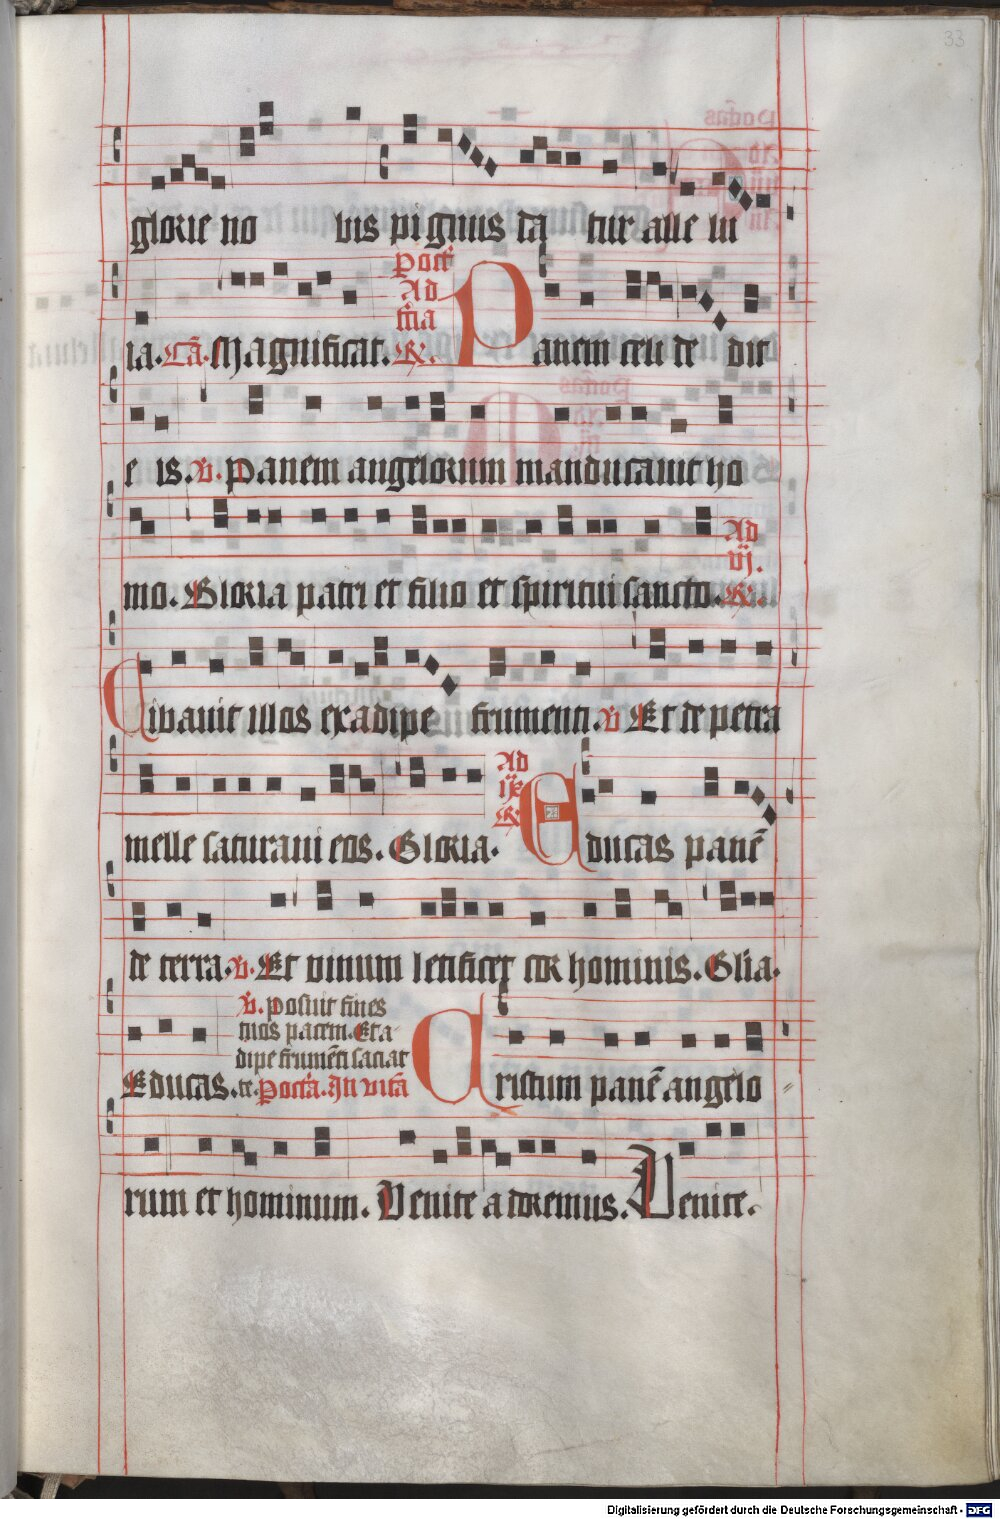 33
glorie no bis pi gnus da tur alle lu
ia. Cā. Magnificat.
Ad
R. Panem celi de dit
e is. V. Panem angelorum manducauit ho
mo. Gloria patri et filio et spiritui sancto.
Ad
vj.
R.
Cibauit illos ex adipe frumenti. V Et de petra
melle saturauit eos. Gloria.
Ad
ix
R Educas panē
de terra. V. Et uinum letificet cor hominis. Glia.
Educas.
V. Posuit fines
tuos pacem. Et a
dipe frumēti saciat
te. Añ vitā
Cristum panē angelo
rum et hominum. Venite adoremus. Venite.
Digitalisierung gefördert durch die Deutsche Forschungsgemeinschaft - DFG